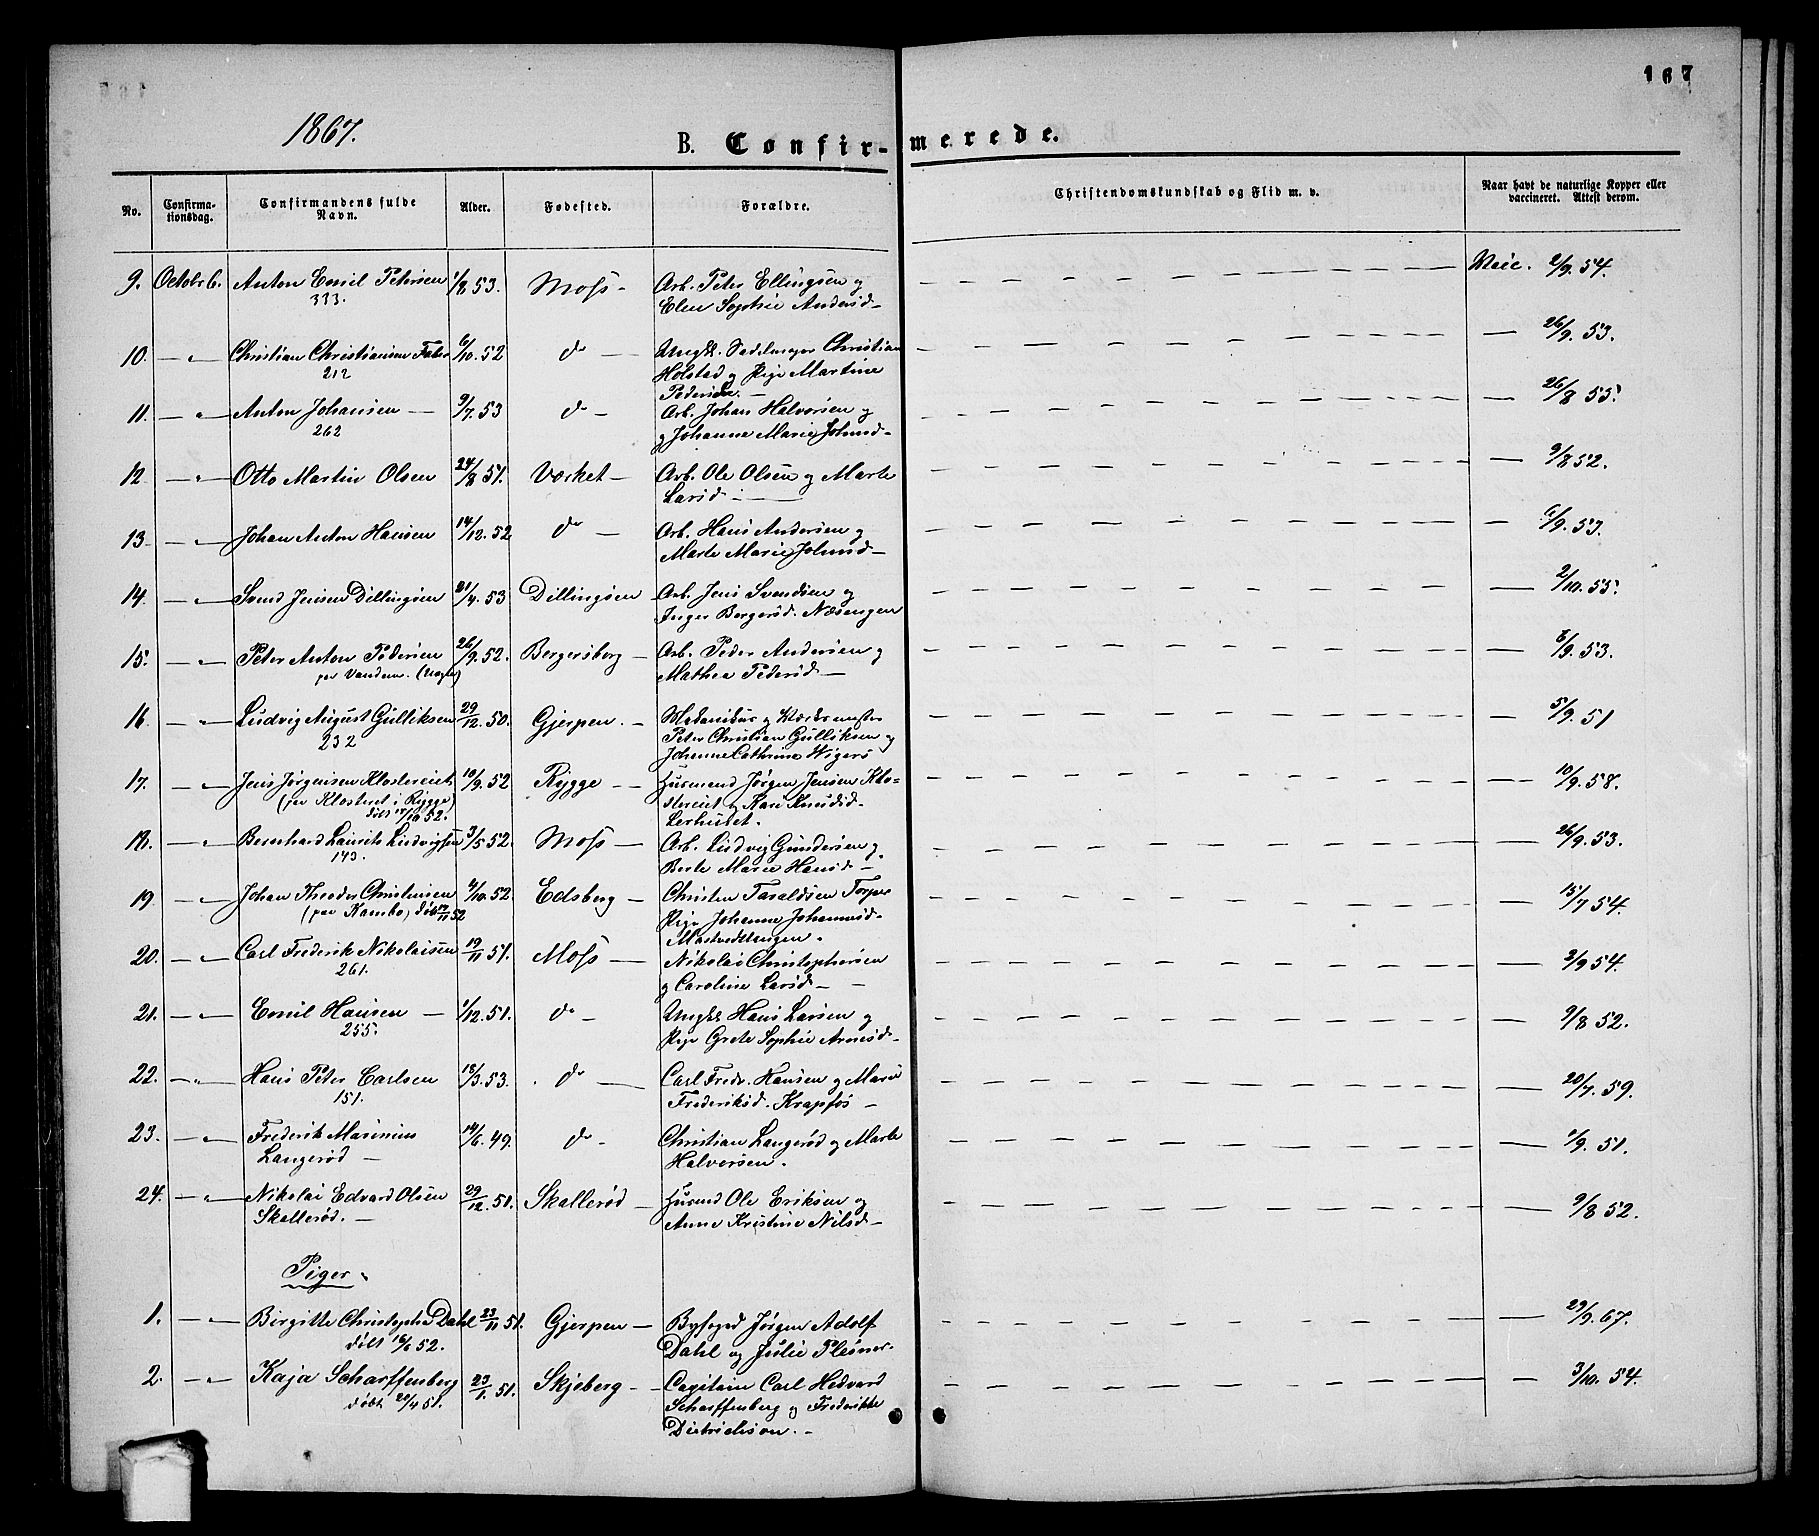 167
1867.
B. Confirmerede.
No. Confirmationsdag. Confirmandens fulde Navn. Alder. Fødested. Forældre. Christendomskundskab og Flid m. v. Naar havt de naturlige Kopper eller vaccineret. Attest derom.
9. Octobr 6. Anton Emil Petersen 1/8 53. Moss - Arb. Peter Ellingsen og 2/9. 54.
333. Elen Sophie Andersd -
10. - " - Christian Christiansen 6/10. 52 do - Ungk. Sadelmager Christian 26/9. 53.
212 Holstad og Pige Martine
Pedersen. -
11. - " - Anton Johansen - 9/7. 53 do - Arb. Johan Halvorsen og 26/8 55.
262 og Johanne Marie
12. - " - Otto Martin Olsen 24/8 51. Værket - Arb. Ole Olsen og Marte 9/8 52.
Larsd -
13. - " - Johan Anton Hansen 14/12. 52 do - Arb. Hans Andersen og 6/9. 53.
Marte Marie
14. - " - Svend Jensen Dillingøen 21/4. 53 Dillingøen - Arb. Jens Svendsen og 2/10. 55.
Inger Bergersd. Næsengen
15. - " - Peter Anton Pedersen 26/9. 52. Bergersborg - Arb. Peder Andersen og 6/9. 53.
pr Vandem. Mathea Pedersd -
16. - " - Ludvig August Gulliksen 29/12. 50. Gjerpen. - og Værksmester 5/9. 51
232 Peter Christian Gulliksen og
Johanne Cathrine Wigers
17. - " - Jens Jørgensen Klostereiet 10/9. 52 Rygge - Husmand Jørgen Jensen Klo- 10/9. 58.
(pr Klosteret i Rygge) stereiet og Kari Knudsd.
52. Lerhuset.
18. - " - Bernhard Laurits Ludvigsen 3/5 52. Moss - Arb. Ludvig Gundersen og 26/9. 53.
143. Berte Marie Hansd -
19 - " - Johan Theodor Christensen 4/10. 52 Edsberg - Christen Taraldsen Torper 15/7 54.
(pr Kambo) døbt 14/11 52 Pige Johanne Johannesd.
20. - " - Carl Frederik Nikolaisen 19/11 51. Moss - Nikolai Christophersen 2/9 54.
261. og Caroline Larsd -
21. - " - Emil Hansen - 1/12. 51. do - Ungk. Hans Larsen og 9/8 52.
255. Pige Grete Sophie Arnesd -
22. - " - Hans Peter Carlsen 18/3. 53. do - Carl Fredr. Hansen og Marie 20/7. 59.
151. Frederiksd. Krapfos -
23. - " - Frederik Marinius 14/6. 49. do - Christian Langerød og Marte 1/9. 51.
Langerød - Halvorsen.
24. - " - Nikolai Edvard Olsen 29/12. 51. Skallerød - Husmd Ole Eriksen og 9/8 52.
Skallerød. - Anne Kristine Nilsd -
Piger.
1. - " - Birgitte Dahl 23/11 51. Gjerpen - Byfoged Jørgen Adolf 29/9. 67.
døbt 52. Dahl og Julie Plesner.
2. - " - Kaja Scharffenberg 23/1. 51. Skjeberg - Capitain Carl Hedvard 3/10. 54.
døbt 22/4 51. Scharffenberg og Frederikke
Dietrichson. -